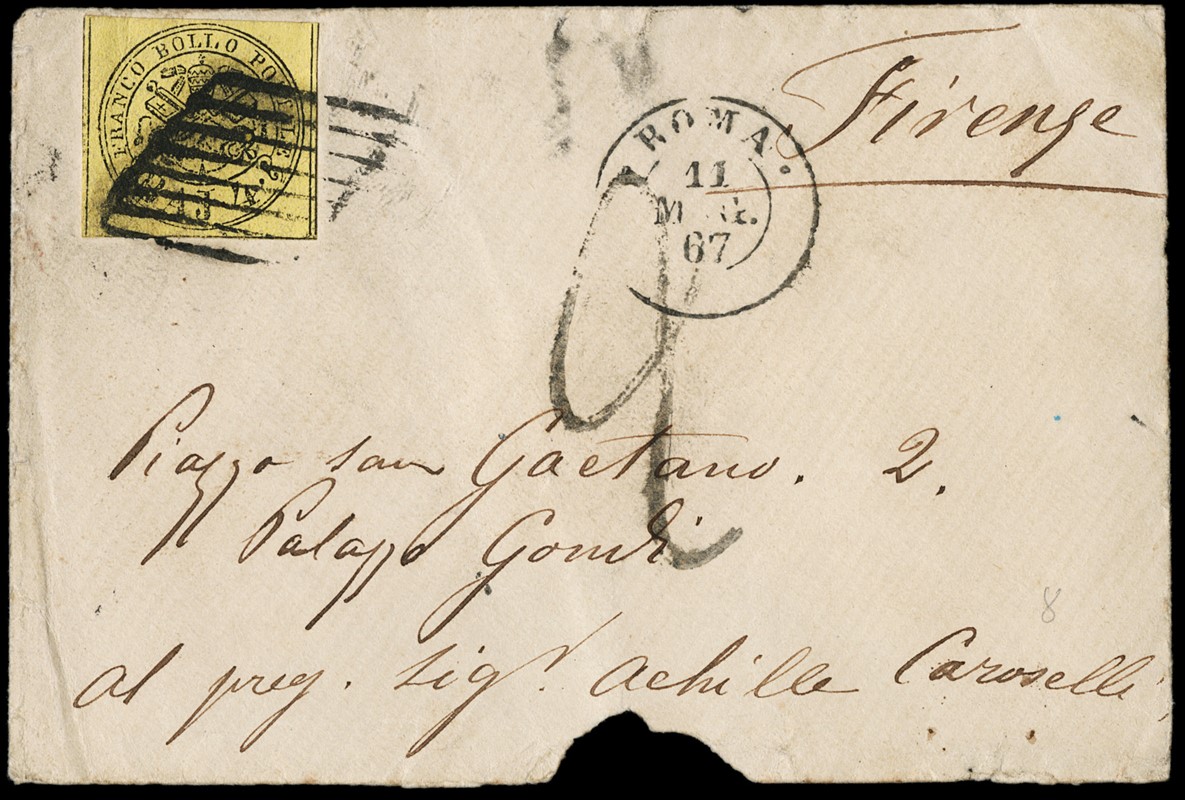 FRANCO BOLLO POSTALE
BAJ. 8
ROMA.
11
MAG.
67
Firenze
2
Piazza san Gaetano. 2.
Palazzo Gondi
al preg. sigr. Achille Caroselli
8